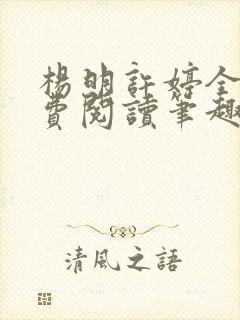 楊明許婷全
費閱讀筆趣
清風之語